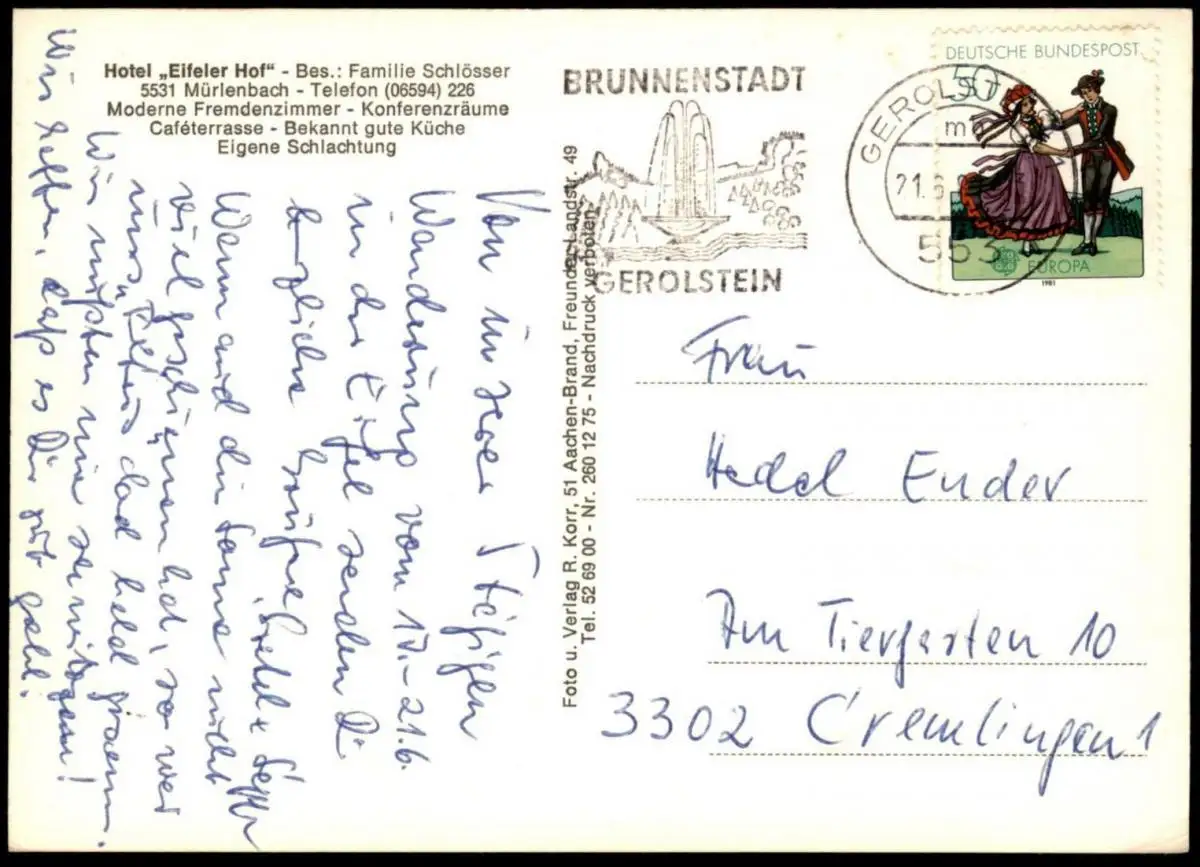 Hotel „Eifeler Hof“ - Bes.: Familie Schlösser
5531 Mürlenbach - Telefon (06594) 226
Moderne Fremdenzimmer - Konferenzräume
Caféterrasse - Bekannt gute Küche
Eigene Schlachtung
BRUNNENSTADT
GEROLSTEIN
GEROLST
21.6
553
DEUTSCHE BUNDESPOST
50
EUROPA
1981
Foto u. Verlag R. Korr, 51 Aachen-Brand, Freunder Landstr. 49
Tel. 52 69 00 - Nr. 260 12 75 - Nachdruck verboten
Von unserer 5tägigen
Wanderung vom 17.-21.6.
in der Eifel senden Dir
herzliche Grüße
Wenn auch die Sonne nicht
viel geschienen hat, so war
uns
Wir mußten nie
Wir hoffen, daß es Dir gut geht.
Frau
Hedel Ender
Am Tiergarten 10
3302 Cremlingen 1